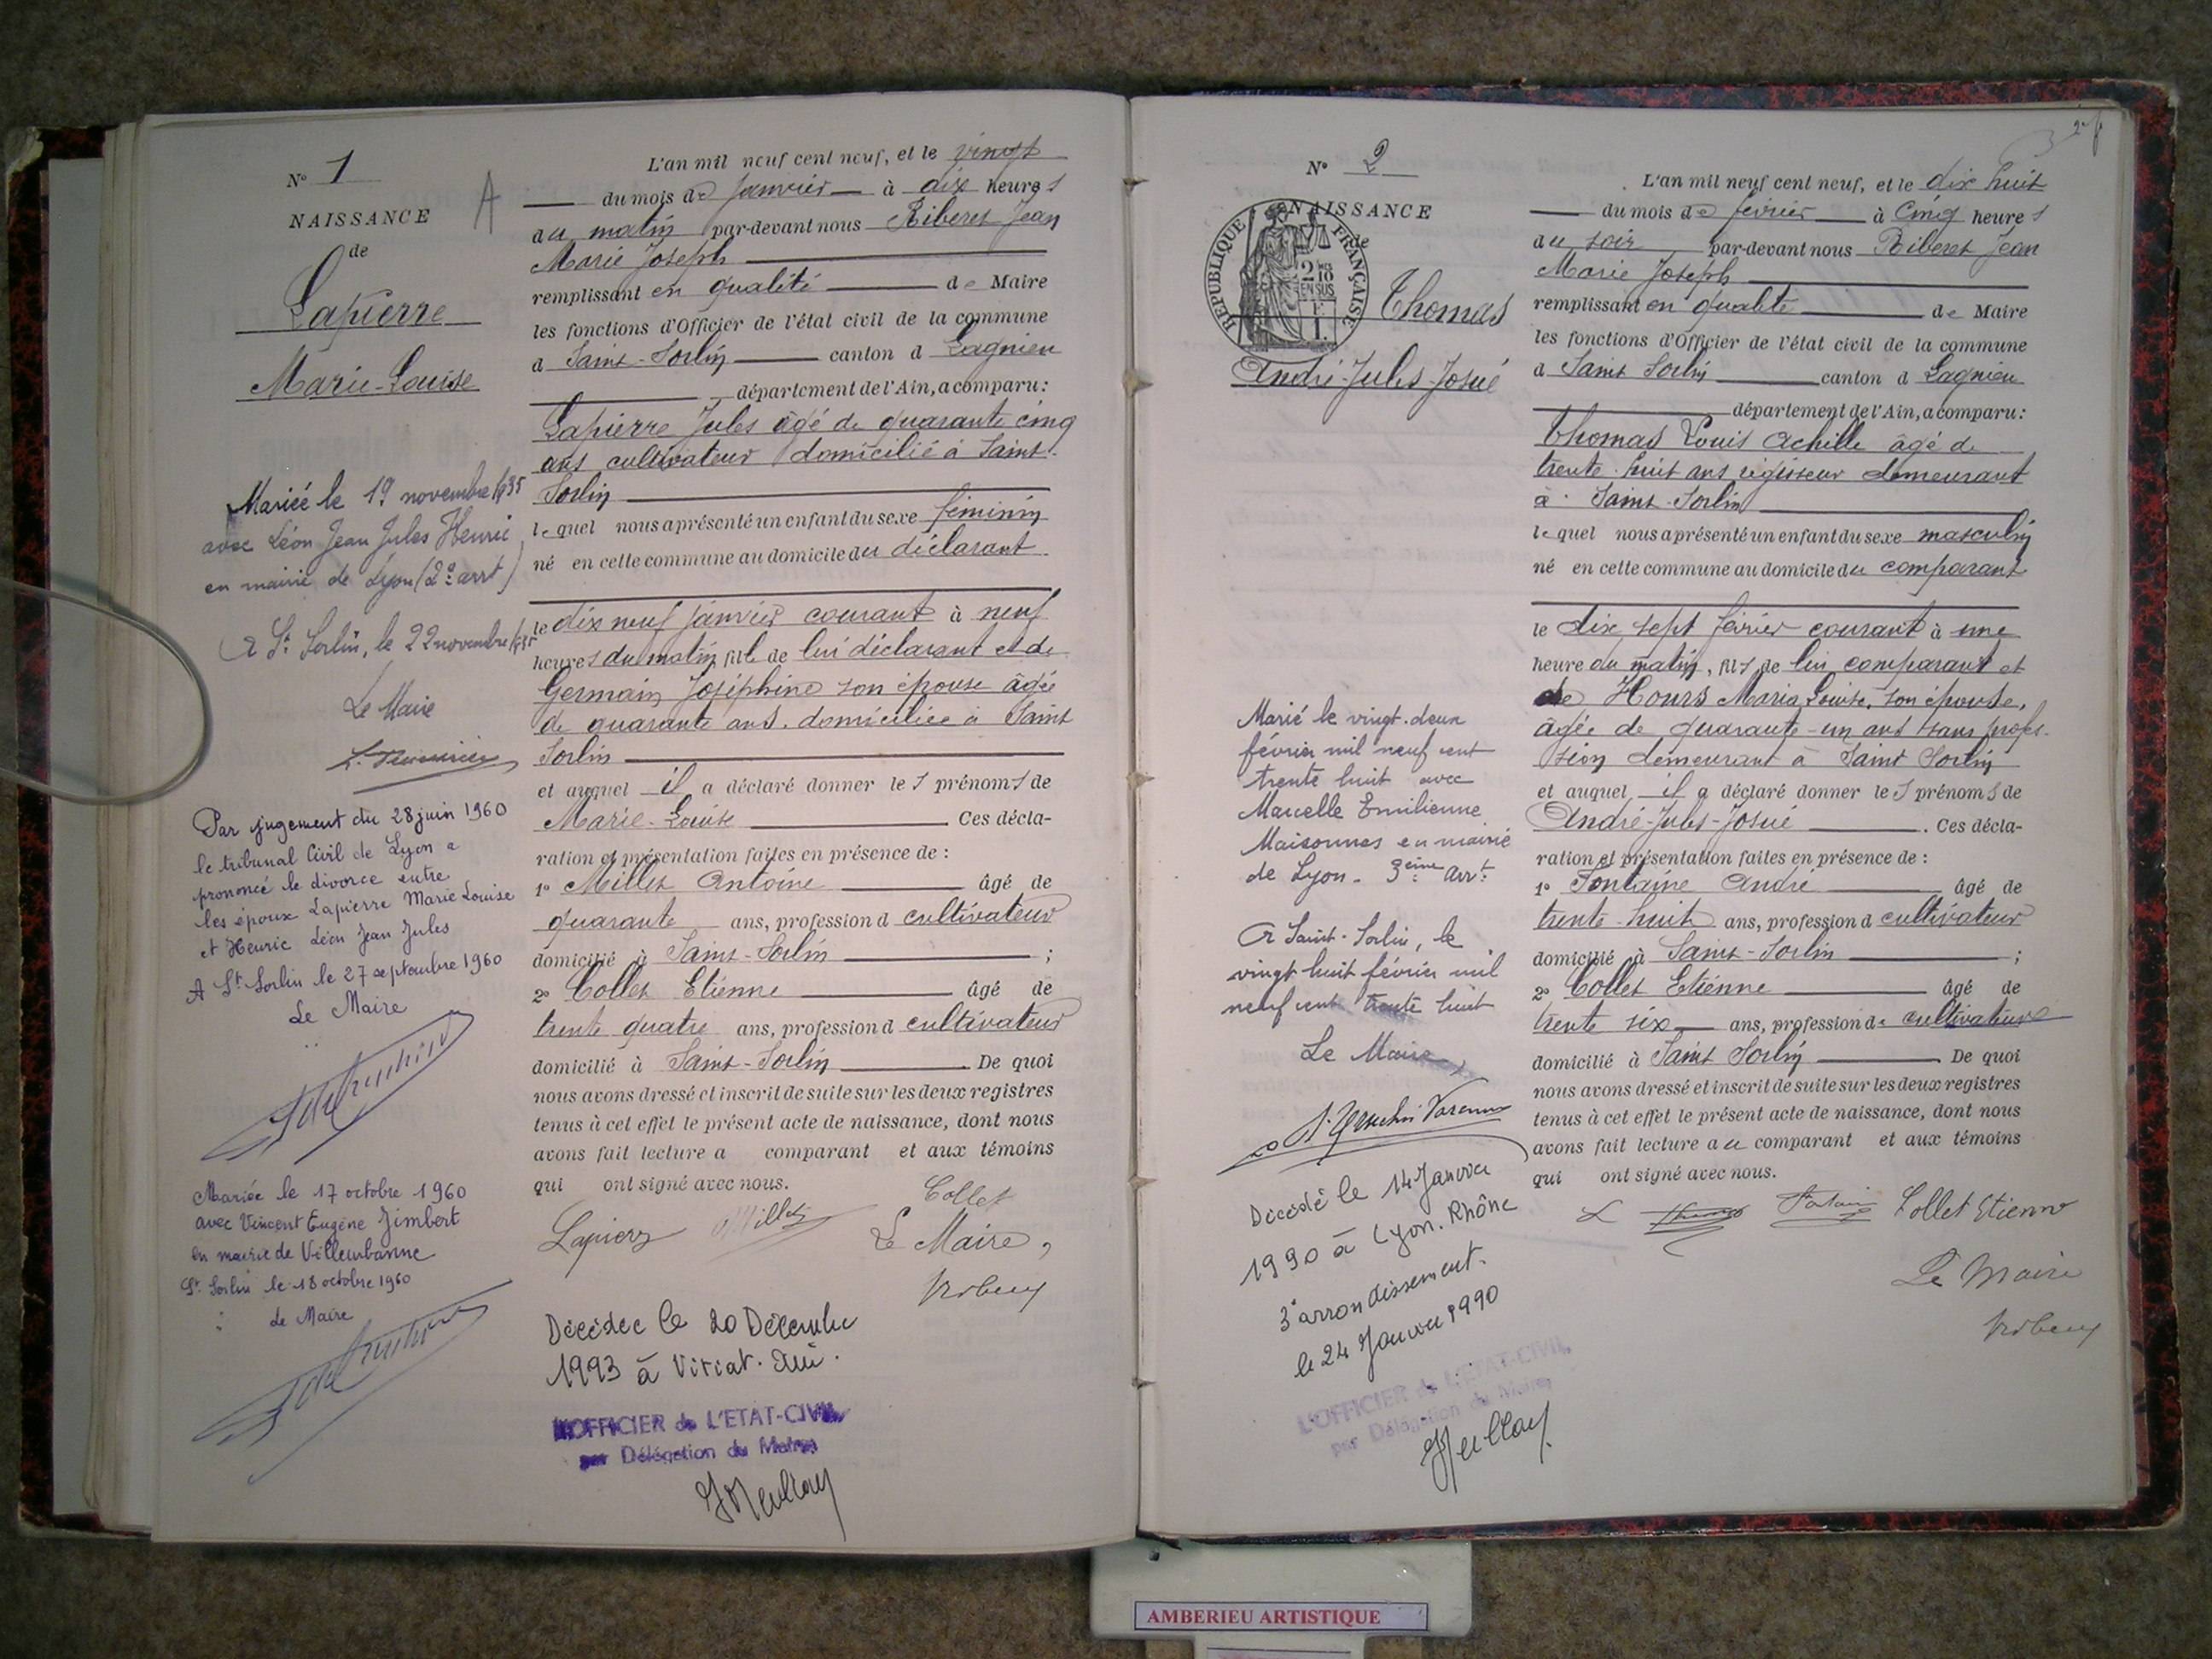 N° 1
NAISSANCE
de
Lapierre
Marie-Louise
A
Mariée le 19 novembre 1935
avec Léon Jean Jules Heuric
en mairie de Lyon (2e arrt)
A St Sorlin, le 22 novembre 1935
Le Maire
Par jugement du 28 juin 1960
le tribunal Civil de Lyon a
prononcé le divorce entre
les époux Lapierre Marie Louise
et Heuric Léon Jean Jules
A St Sorlin le 27 septembre 1960
Le Maire
Mariée le 17 octobre 1960
avec Vincent Eugène Jimbert
en mairie de Villeurbanne
St Sorlin le 18 octobre 1960
Le Maire
L'an mil neuf cent neuf, et le vingt
du mois de Janvier à dix heures
du matin par-devant nous Riberet Jean
Marie Joseph
remplissant en qualité de Maire
les fonctions d'Officier de l'état civil de la commune
d Saint-Sorlin canton d Lagnieu
département de l'Ain, a comparu:
Lapierre Jules âgé de quarante cinq
ans cultivateur domicilié à Saint-
Sorlin
lequel nous a présenté un enfant du sexe féminin
né en cette commune au domicile du déclarant
le dix neuf janvier courant à neuf
heures du matin, fille de lui déclarant et de
Germain Joséphine son épouse âgée
de quarante ans, domiciliée à Saint
Sorlin
et auquel il a déclaré donner les prénoms de
Marie-Louise Ces décla-
ration et présentation faites en présence de :
1° Millet Antoine âgé de
quarante ans, profession d cultivateur
domicilié à Saint-Sorlin ;
2° Collet Etienne âgé de
trente quatre ans, profession d cultivateur
domicilié à Saint-Sorlin. De quoi
nous avons dressé et inscrit de suite sur les deux registres
tenus à cet effet le présent acte de naissance, dont nous
avons fait lecture a comparant et aux témoins
qui ont signé avec nous.
Lapierre Millet Collet
Le Maire,
Riberet
Décédée le 20 Décembre
1993 à Viriat. Ain.
L'OFFICIER de L'ETAT-CIVIL
par Délégation du Maire
N° 2
NAISSANCE
de
REPUBLIQUE FRANÇAISE
2 10
EN SUS
Thomas
André-Jules-Josué
Marié le vingt-deux
février mil neuf cent
trente huit avec
Marcelle Emilienne
Maisonnas en mairie
de Lyon - 3ème arrt
A Saint-Sorlin, le
vingt huit février mil
neuf cent trente huit
Le Maire
Décédé le 14 Janvier
1990 à Lyon. Rhône
3e arrondissement.
le 24 Janvier 1990
L'OFFICIER de L'ETAT-CIVIL
par Délégation du Maire
L'an mil neuf cent neuf, et le dix huit
du mois de février à cinq heures
du soir par-devant nous Riberet Jean
Marie Joseph
remplissant en qualité de Maire
les fonctions d'Officier de l'état civil de la commune
d Saint Sorlin canton d Lagnieu
département de l'Ain, a comparu:
Thomas Louis Achille âgé de
trente-huit ans régisseur demeurant
à Saint-Sorlin
lequel nous a présenté un enfant du sexe masculin
né en cette commune au domicile du comparant
le dix sept février courant à une
heure du matin, fils de lui comparant et
de Hours Maria Louise, son épouse,
âgée de quarante-un ans sans profes-
sion demeurant à Saint Sorlin
et auquel il a déclaré donner les prénoms de
André-Jules-Josué. Ces décla-
ration et présentation faites en présence de :
1° Fontaine André âgé de
trente-huit ans, profession d cultivateur
domicilié à Saint-Sorlin ;
2° Collet Etienne âgé de
trente six ans, profession de cultivateur
domicilié à Saint Sorlin. De quoi
nous avons dressé et inscrit de suite sur les deux registres
tenus à cet effet le présent acte de naissance, dont nous
avons fait lecture au comparant et aux témoins
qui ont signé avec nous.
Thomas Fontaine Collet Etienne
Le Maire
Riberet
AMBERIEU ARTISTIQUE